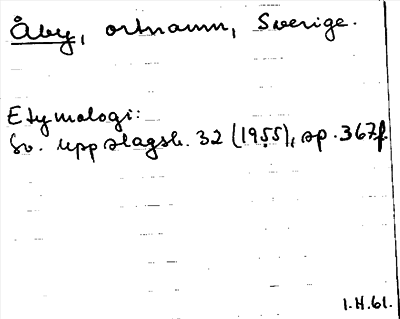 Åby, ortnamn, Sverige.
Etymologi:
Sv. uppslagsb. 32 (1955), sp. 367f.
1.H.61.